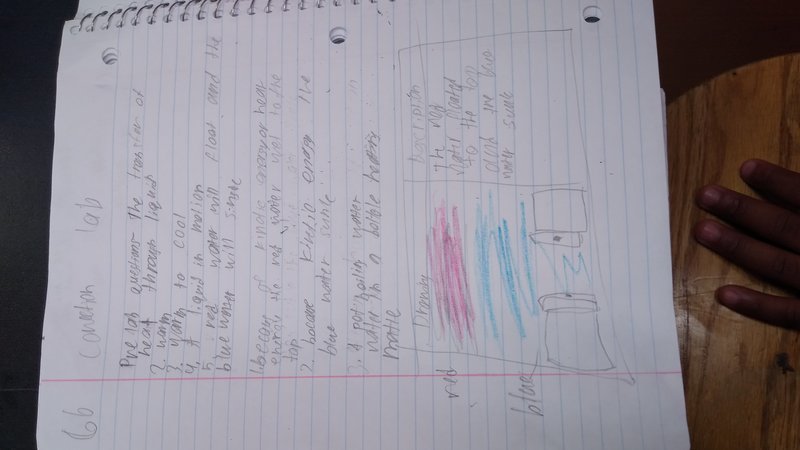 6b convection lab
Pre lab questions- the transfer of
heat through liquid
2. warm
3. warm to cool
4. A liquid in motion
5. red water will float and the
blue water will sink
1. because of kinetic energy or heat
energy the red water went to the
top
2. because kinetic energy the
blue water sunk
3. A pot boiling water
water in a bottle
Drawing
Description
The red
water floated
to the top
and the blue
water sunk
red
blue